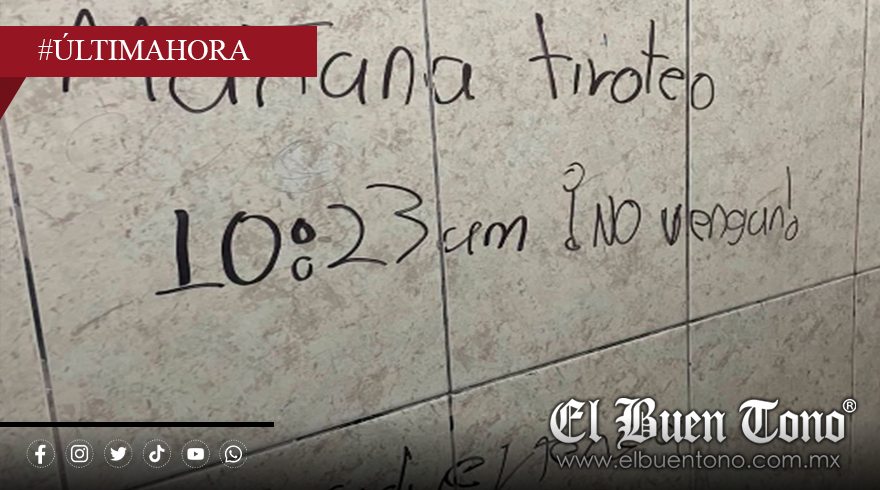 #ÚLTIMAHORA
Mañana tiroteo
10:23 am ¡NO vengan!
El Buen Tono®
www.elbuentono.com.mx